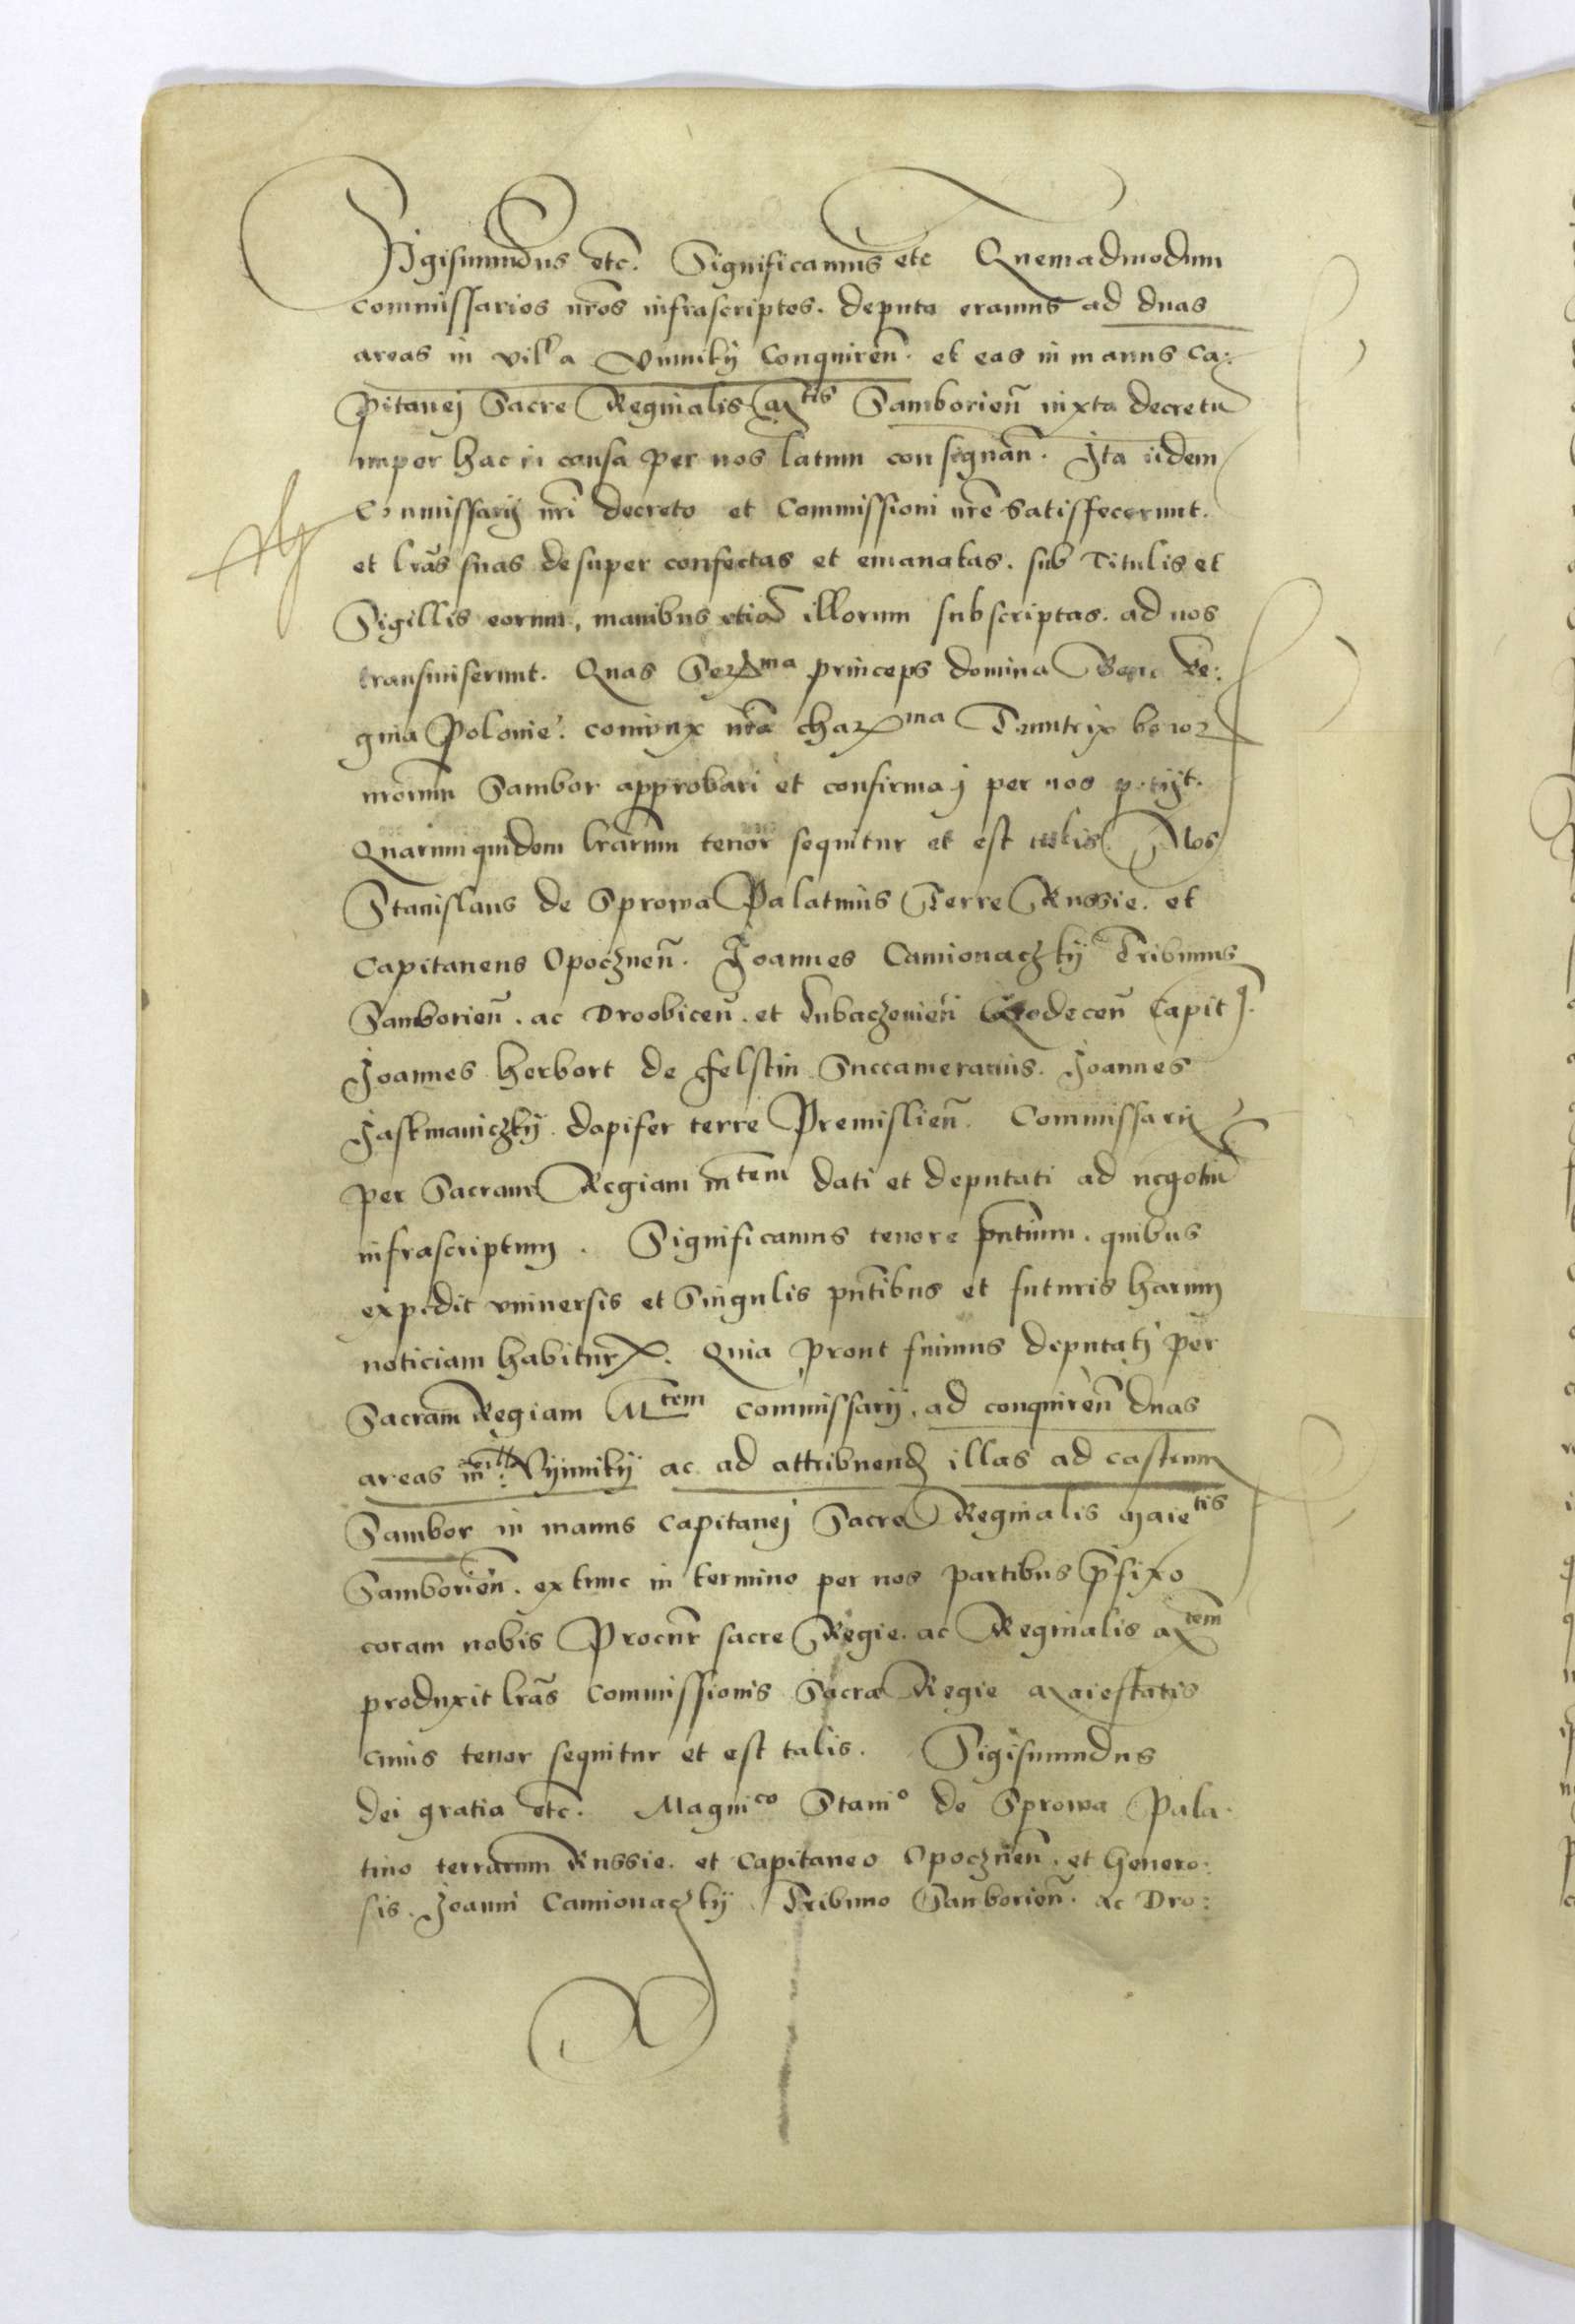 Sigismundus etc. Significamus etc Quemadmodum
commissarios nros infrascriptos. deputa eramus ad duas
areas in villa Vnniky Conquiren. et eas in manus Ca:
pitanej Sacre Reginalis Mtis Samborien iuxta decretu
nuper hac in causa per nos latum consegnan. Ita iidem
Commissarij nri decreto et Commissioni nre Satisfecerunt.
et lras suas desuper confectas et emanatas. sub Titulis et
Sigillis eorum, manibus etia illorum subscriptas. ad nos
transmiserunt. Quas Serma princeps domina Bona Re:
gina Polonie. coniunx nra charma Tenutrix bonor
nrorum Sambor approbari et confirmaj per nos petijt.
Quarum quidem lrarum tenor sequitur et est talis. Nos
Stanislaus de Sprowa Palatinus Terre Russie. et
Capitaneus Opocznen. Joannes Camionaczky Tribunus
Samborien. ac Droobicen. et Lubaczouien Grodecen Capit.
Joannes herbort de felstin Succamerarius. Joannes
Jaskmaniczky. dapifer terre Premislien. Commissarij
per Sacram Regiam mtem dati et deputati ad negotiu
infrascriptum. Significamus tenore pntium. quibus
expedit vniuersis et Singulis pntibus et futuris harum
noticiam habitur. Quia prout fuimus deputatj per
Sacram Regiam Mtem commissarij, ad conquiren duas
areas in villa Vynniky ac ad attribuend illas ad castrum
Sambor in manus Capitanej Sacre Reginalis Maietis
Samborien. extunc in termino per nos partibus prefixo
coram nobis Procur sacre Regie. ac Reginalis Mtem
produxit lras Commissionis Sacre Regie Maiestatis
cuius tenor sequitur et est talis. Sigismundus
dei gratia etc. Magnico Stanio de Sprowa Pala
tino terrarum Russie. et Capitaneo Opocznen. et Genero:
sis. Joanni Camionaczky Tribuno Samborien. ac Dro: